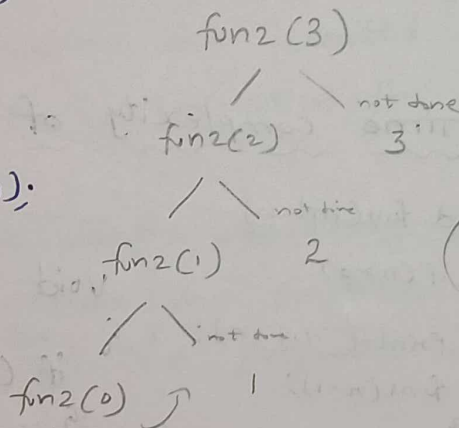 fun2(3)
not done
fun2(2) 3
):
not done
fun2(1) 2
not done
fun2(0) 1